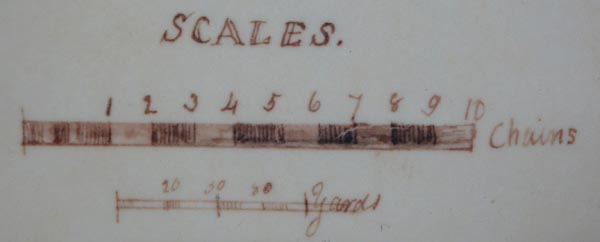 SCALES.
1 2 3 4 5 6 7 8 9 10 Chains
20 50 80 Yards